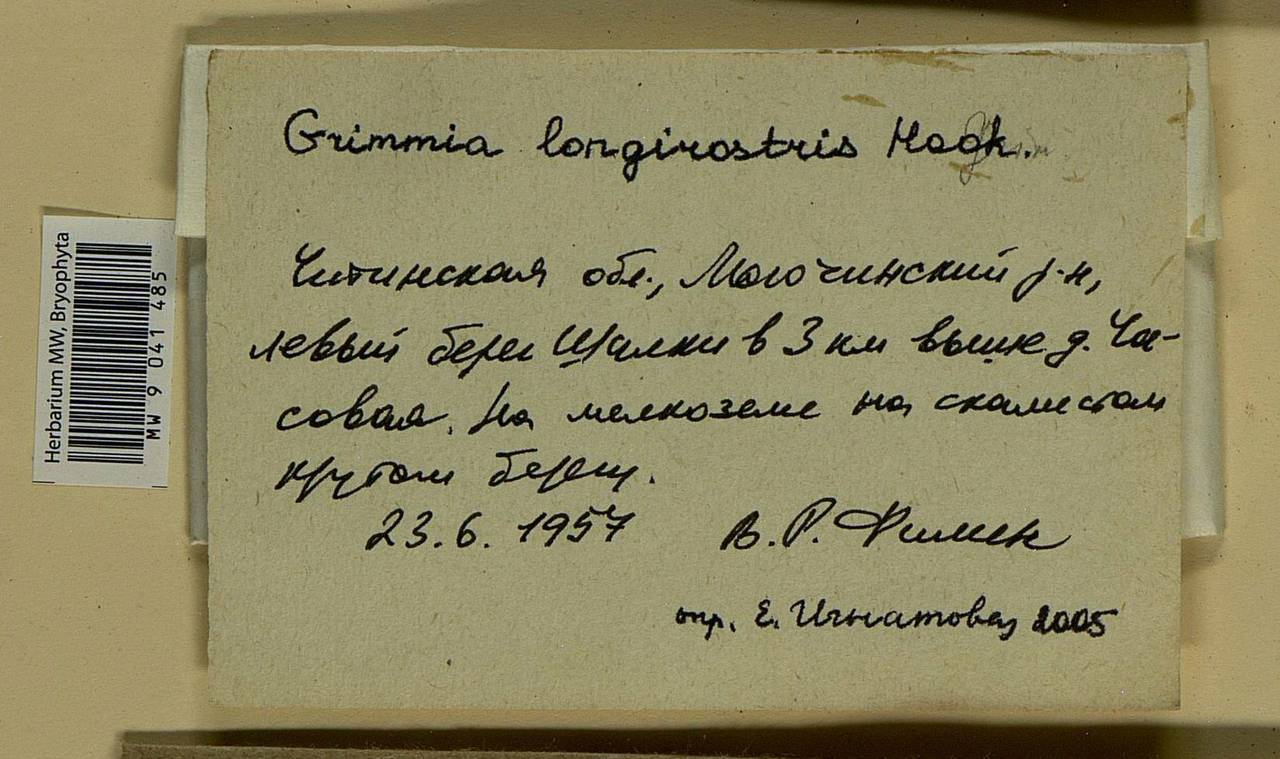 Grimmia longirostris Hook.
Читинская обл., Могочинский р-н,
левый берег Шилки в 3 км выше д. Ча-
совая. На мелкоземе на скалистом
крутом берегу.
23.6.1957 В.Р. Филин
опр. Е. Игнатова 2005
Herbarium MW, Bryophyta
MW 9 041 485